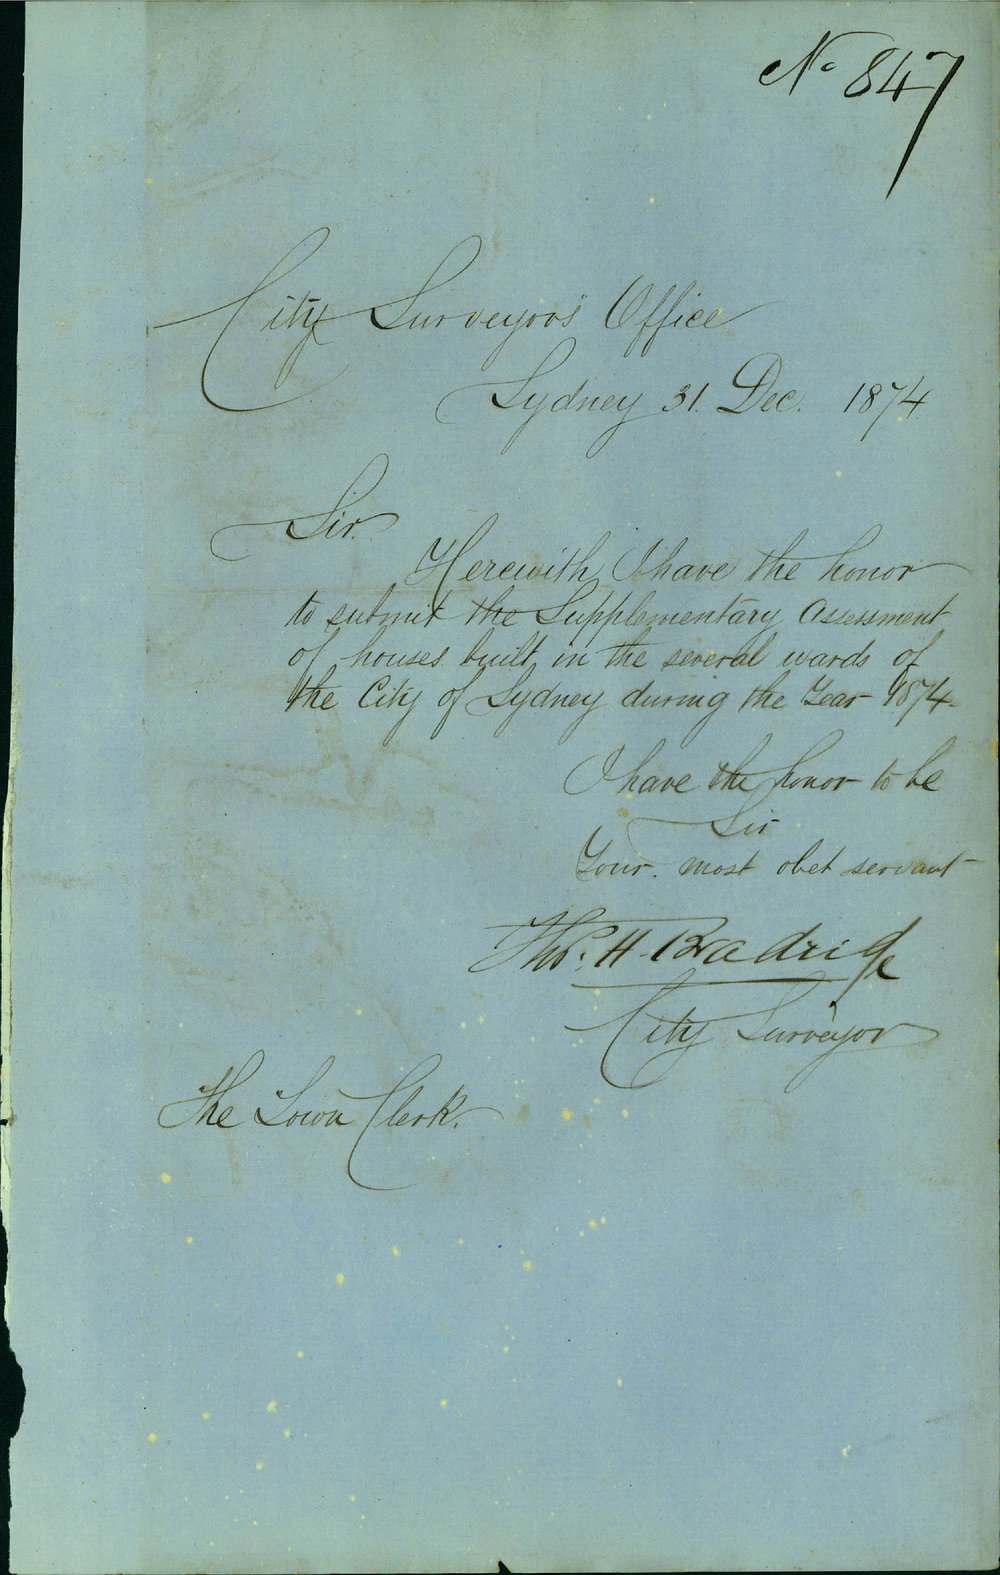 No 847
City Surveyor's Office
Sydney 31. Dec. 1874
Sir.
Herewith I have the honor
to submit the Supplementary Assessment
of houses built in the several wards of
the City of Sydney during the Year 1874.
I have the honor to be
Sir
Your. most obet servant
Thos. H. Bradridge
City Surveyor
The Town Clerk.